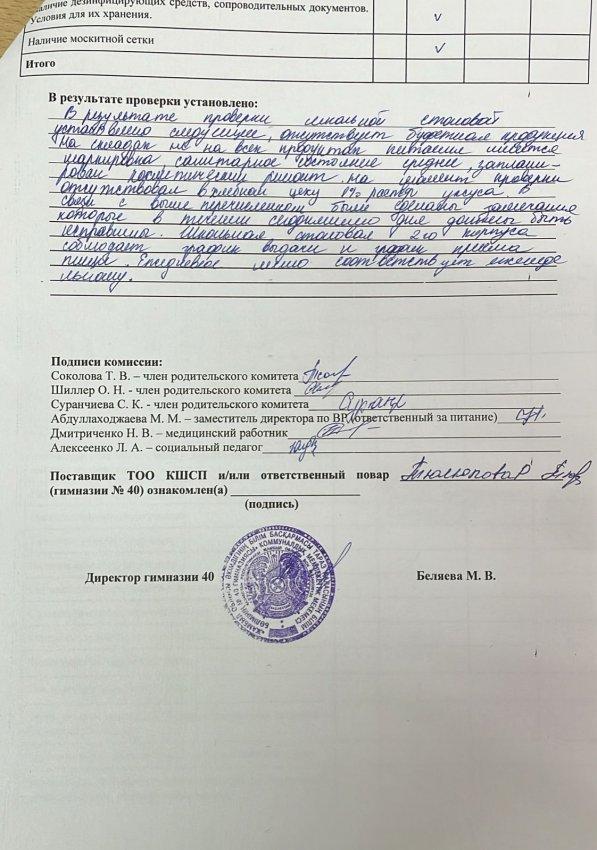 наличие дезинфицирующих средств, сопроводительных документов.
Условия для их хранения.
Наличие москитной сетки
Итого
В результате проверки установлено:
В результате проверки школьной столовой
установлено следующее, отсутствует буфетная продукция
на складах не на всех продуктах питания имеется
маркировка санитарное состояние среднее, заплани-
рован косметический ремонт на момент проверки
отсутствовал в учебном цеху 1% раствор уксуса. В
связи с выше перечисленном были сделаны замечания
которые в течении сегодняшнего дня должны быть
исправлены. Школьная столовая 2го корпуса
соблюдает график выдачи и приема
пищи. Ежедневное меню соответствует еженеде
льному.
Подписи комиссии:
Соколова Т. В. – член родительского комитета
Шиллер О. Н. - член родительского комитета
Суранчиева С. К. - член родительского комитета
Абдуллаходжаева М. М. – заместитель директора по ВР (ответственный за питание)
Дмитриченко Н. В. – медицинский работник
Алексеенко Л. А. – социальный педагог
Поставщик ТОО КШСП и/или ответственный повар
(гимназии № 40) ознакомлен(а)
(подпись)
Директор гимназии 40 Беляева М. В.